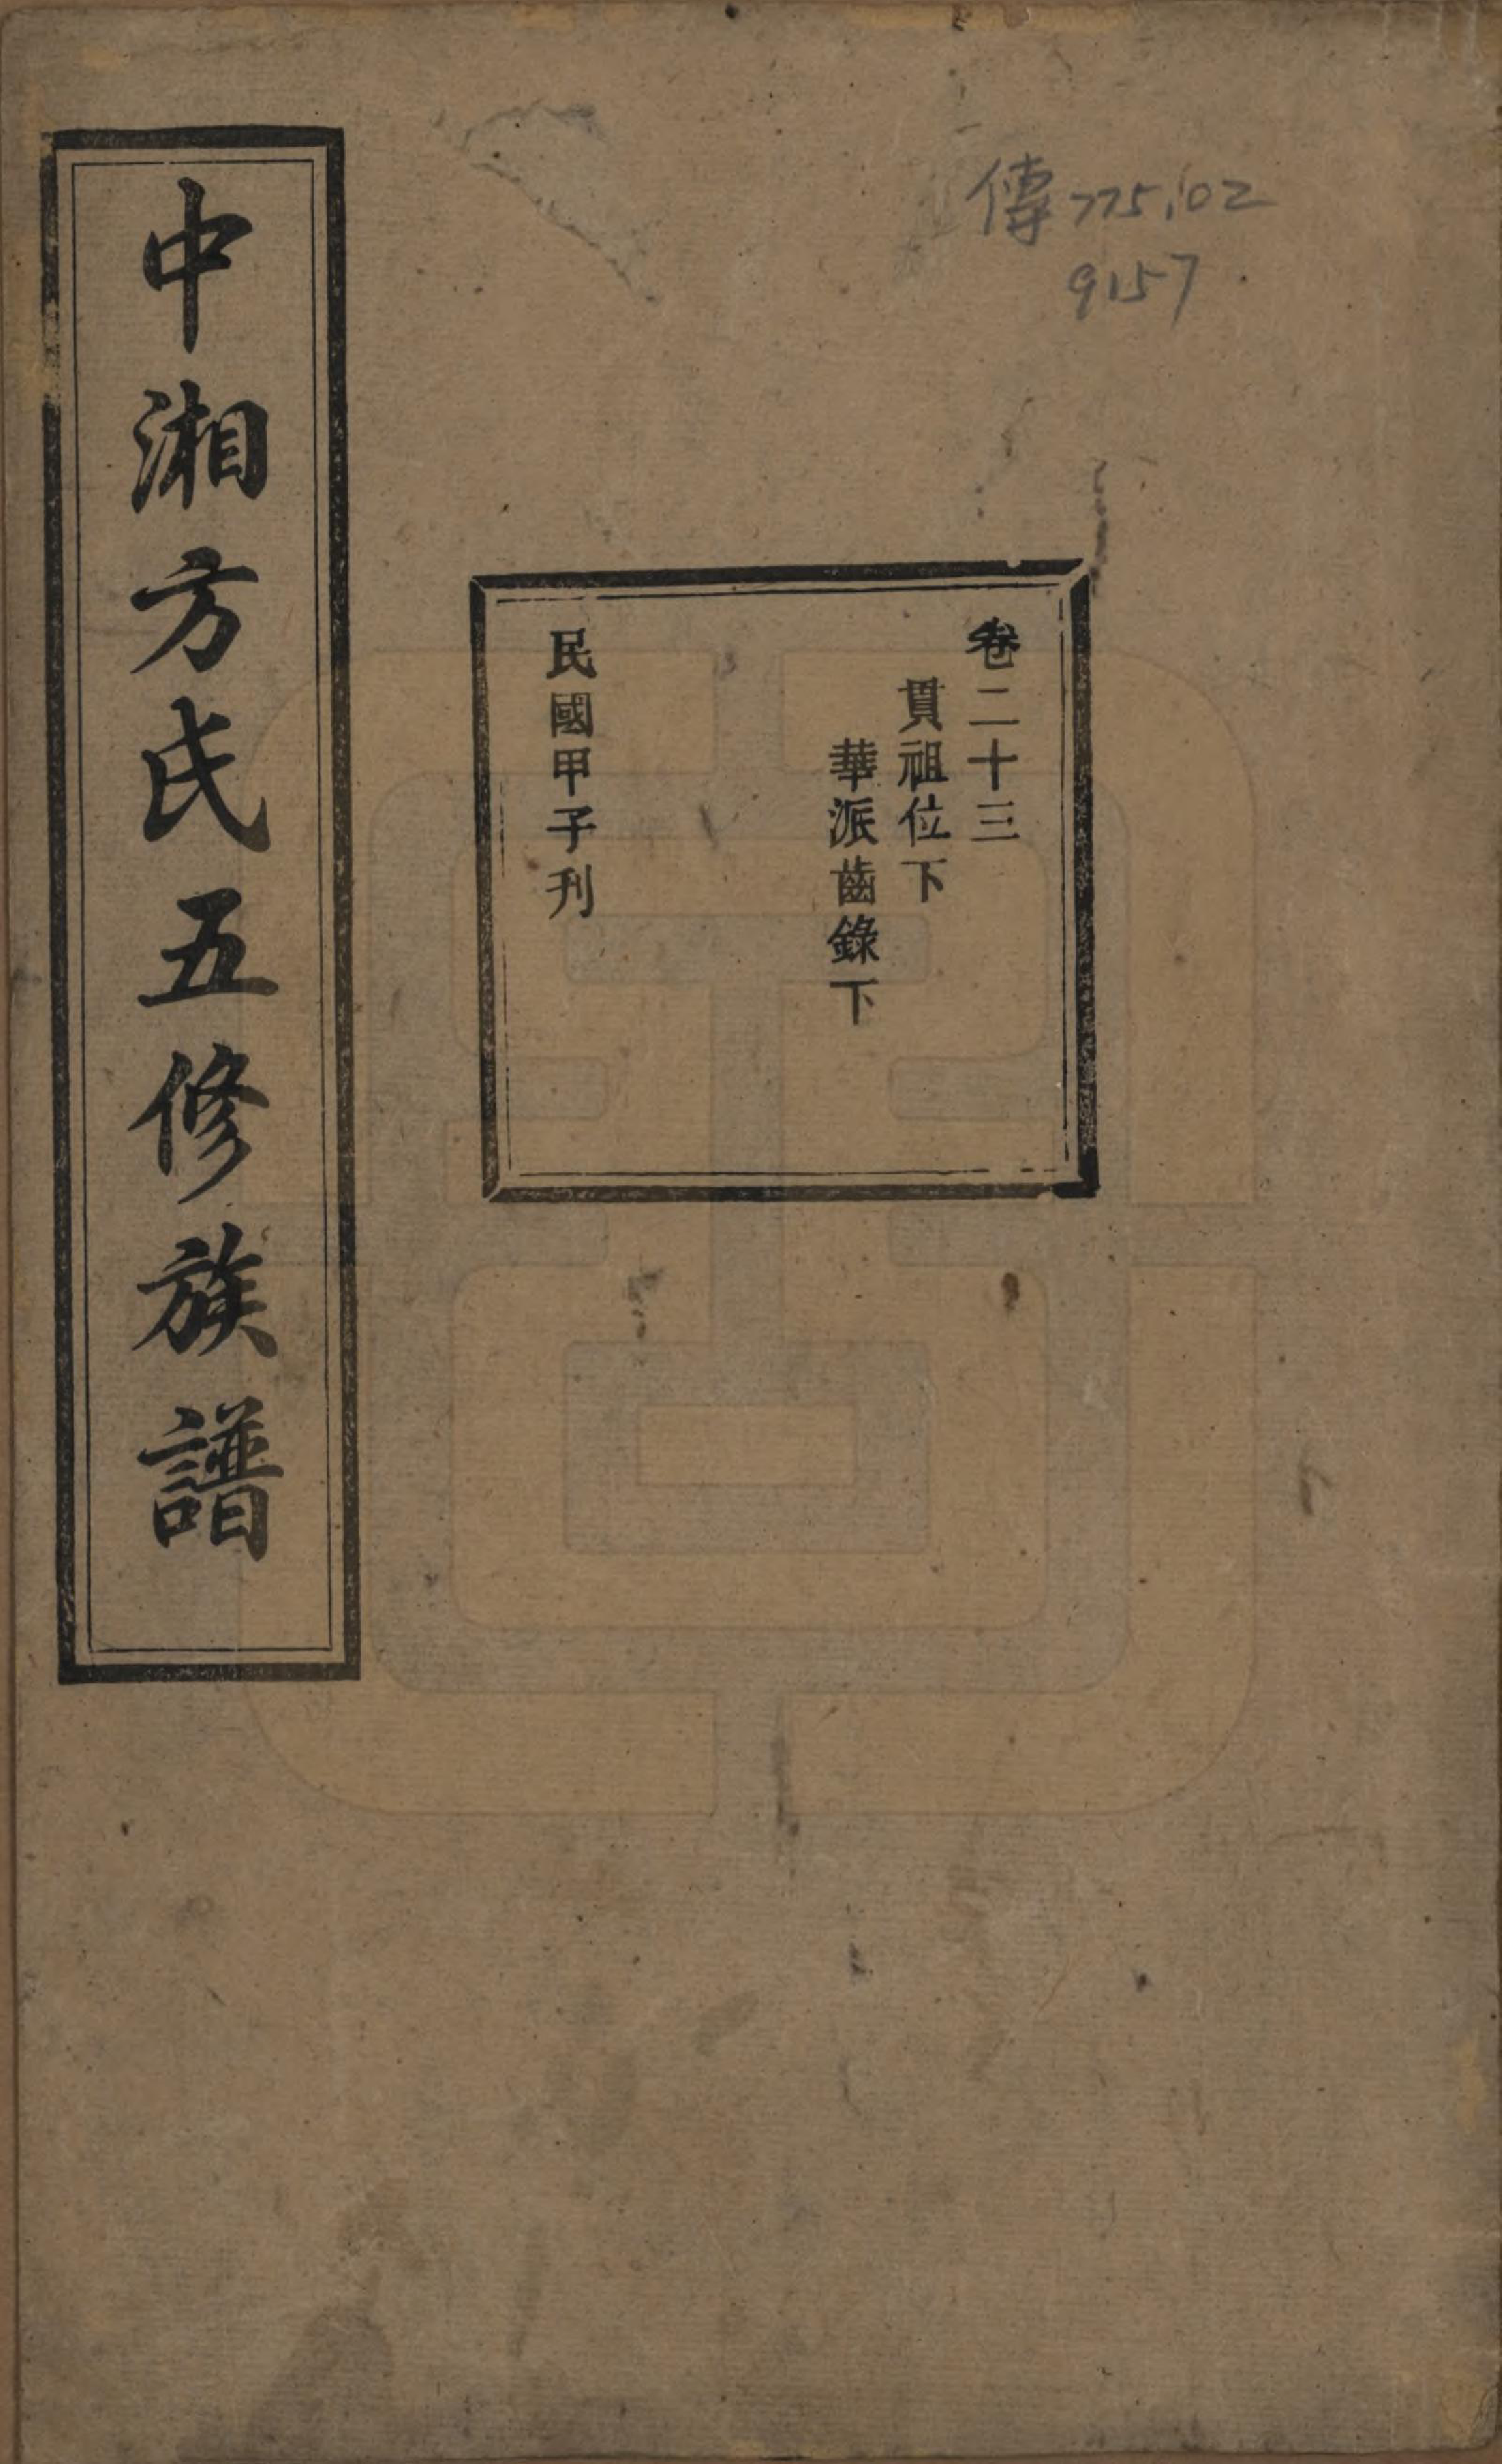 傳775.102
9157
卷二十三
貫祖位下
華派齒錄下
民國甲子刋
中湘方氏五修族譜